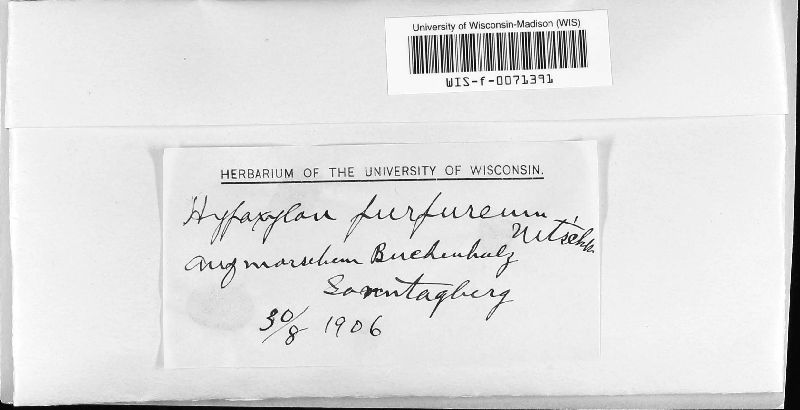 University of Wisconsin-Madison (WIS)
WIS-f-0071391
HERBARIUM OF THE UNIVERSITY OF WISCONSIN.
Hypoxylon furfureum
Nitschk.
auf morschem Buchenholz
Sonntagberg
30/8 1906